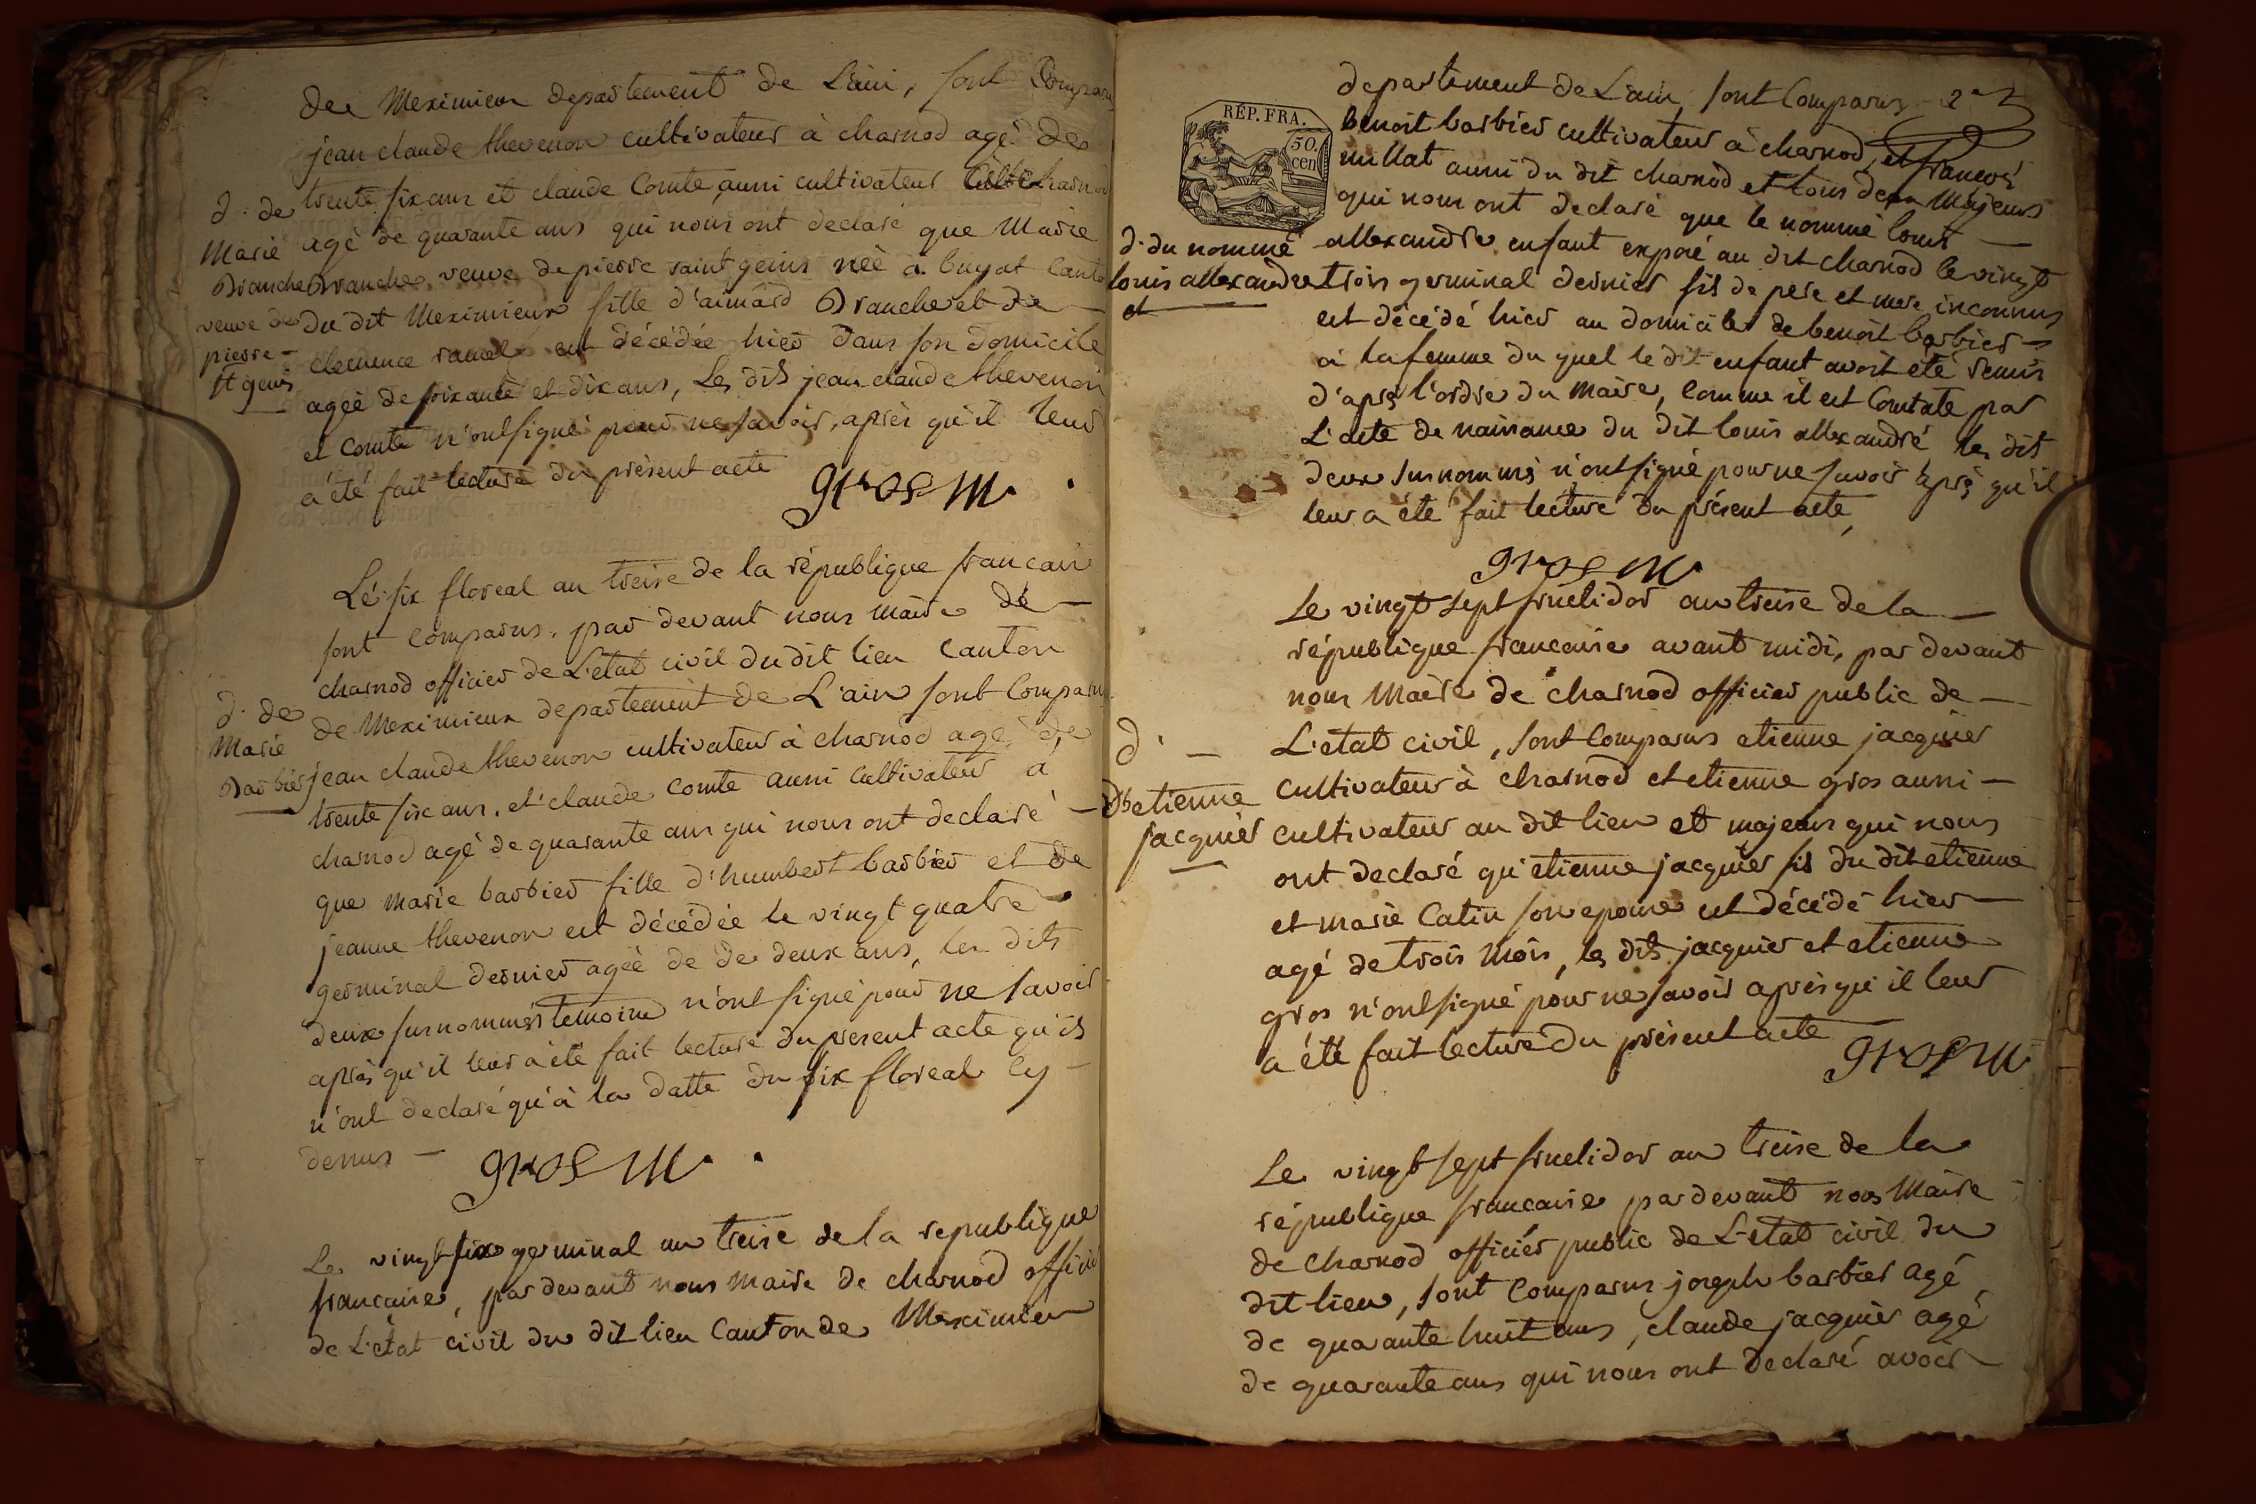 de Meximieux departement de L'ain, sont Comparu
jean claude thevenon cultivateur à charnod agé de
trente six ans et claude Comte aussi cultivateur charnod
d. de
Marie
Branche
veuve de
pierre
st genis
agé de quarante ans qui nous ont declaré que Marie
Branche, veuve de pierre saint genis néé a buyat canto
du dit Meximieux fille d'aimárd Branche et de
clemence ramel est décédée hier dans son domicile
ageé de soixante et dix ans, Les dits jean claude thevenon
et comte n'ont signé pour ne savoir, après qu'il leur
a été fait lecture du présent acte
gros m.
Le six floreal an treise de la république francais
sont comparus, par devant nous maire de
charnod officier de L'état civil du dit lieu canton
de Meximieux departement de L'ain sont Comparus
d. de
Marie
Barbier
jean claude thevenon cultivateur à charnod agé de
trente six ans, et claude comte aussi cultivateur a
charnod agé de quarante ans qui nous ont declaré
que marie barbier fille d'humbert barbier et de
jeanne thevenon est décédée le vingt quatre
germinal dernier ageé de de deux ans, les dits
deux surnommés temoins n'ont signé pour ne savoir
après qu'il leur a été fait lecture du present acte qu'ils
n'ont declaré qu'à la datte du six floreal cy
dessus
gros m.
Le vingt six germinal an treise de la republique
francaise, par devant nous maire de charnod officie
de L'état civil du dit lieu Canton de Meximieu
departement de L'ain, sont Comparus
RÉP. FRA.
50.
cen
benoit barbier cultivateur à charnod, et francois
millat aussi du dit charnod et tous deux Majeurs
qui nous ont declaré que le nommé louis
d. du nommé
louis allexandre
et
allexandre enfant exposé au dit charnod le vingt
trois germinal dernier fils de pere et mere inconnus
est décédé hier au domicile de benoit barbier
à la femme du quel le dit enfant avoit été remis
d'aprs l'ordre du maire, comme il est Constate par
L'acte de naissance du dit louis allexandré les dit
deux surnommés n'ont signé pour ne savoir aprs qu'il
leur a été fait lecture du présent acte,
gros m.
Le vingt sept fruetidor an treise de la
république francaise avant midi, par devant
nous Maire de charnod officier public de
L'etat civil, sont Comparus etienne jacquier
d.
etienne
jacquier
cultivateur à charnod et etienne gros aussi
cultivateur au dit lieu et majeurs qui nous
ont declaré qu'etienne jacquier fils du dit etienne
et marie Catin son epouse est décédé hier
agé de trois mois, les dits jacquier et etienne
gros n'ont signé pour ne savoir après qu'il leur
a été fait lecture du présent acte
gros m.
Le vingt sept fruetidor an treise de la
république francaise par devant nous Maire
de charnod officier public de L'etat civil du
dit lieu, sont Comparus joseph barbier agé
de quarante huit ans, claude jacquier agé
de quarante ans qui nous ont declaré avoir